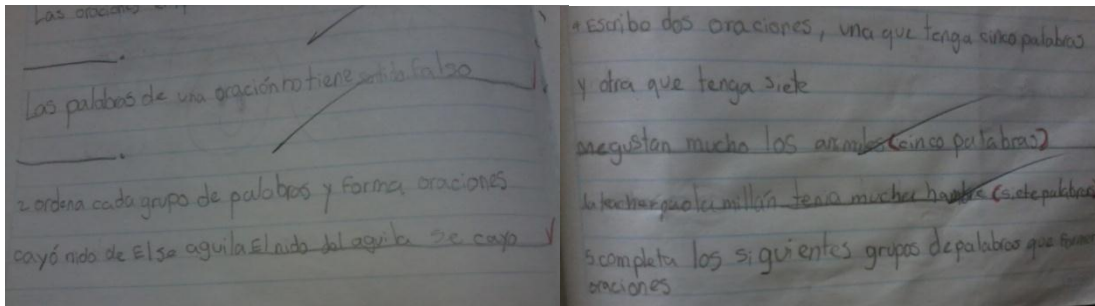 Las oraciones
Las palabras de una oración no tiene sentido falso
2 ordena cada grupo de palabras y forma oraciones
cayó nido de El se aguila El nido del aguila se cayo
4 Escribo dos oraciones, una que tenga cinco palabras
y otra que tenga siete
me gustan mucho los animales (cinco palabras)
la teacher paola millán tenia mucha hambre (siete palabras)
5 completa los siguientes grupos de palabras que forman
oraciones